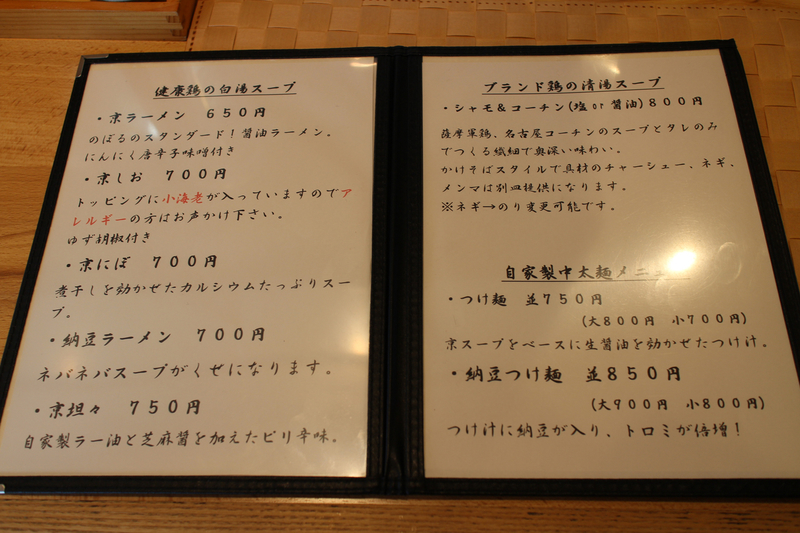 健康鶏の白湯スープ
・京ラーメン　６５０円
のぼるのスタンダード！醤油ラーメン。
にんにく唐辛子味噌付き
・京しお　７００円
トッピングに小海老が入っていますのでア
レルギーの方はお声かけ下さい。
ゆず胡椒付き
・京にぼ　７００円
煮干しを効かせたカルシウムたっぷりスー
プ。
・納豆ラーメン　７００円
ネバネバスープがくせになります。
・京坦々　７５０円
自家製ラー油と芝麻醤を加えたピリ辛味。
ブランド鶏の清湯スープ
・シャモ＆コーチン(塩 or 醤油)８００円
薩摩軍鶏、名古屋コーチンのスープとタレのみ
でつくる繊細で奥深い味わい。
かけそばスタイルで具材のチャーシュー、ネギ、
メンマは別皿提供になります。
※ネギ→のり変更可能です。
自家製中太麺メニュー
・つけ麺　並７５０円
（大８００円　小７００円）
京スープをベースに生醤油を効かせたつけ汁。
・納豆つけ麺　並８５０円
（大９００円　小８００円）
つけ汁に納豆が入り、トロミが倍増！